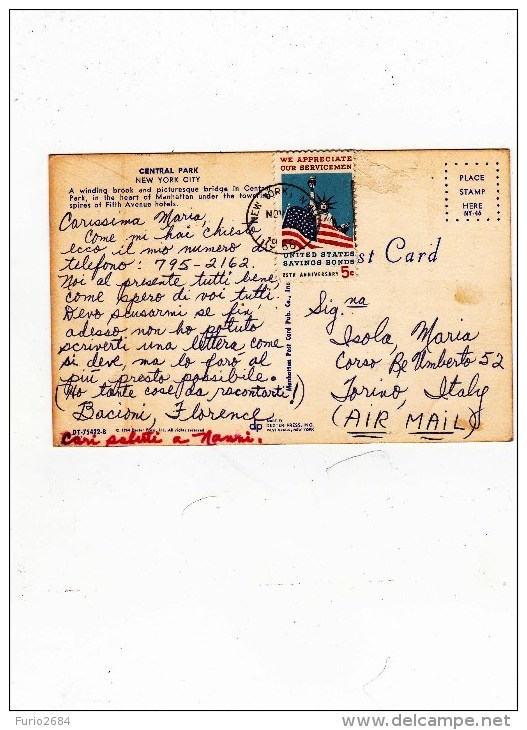 CENTRAL PARK
NEW YORK CITY
A winding brook and picturesque bridge in Central
Park, in the heart of Manhattan under the towering
spires of Fifth Avenue hotels.
Carissima Maria,
Come mi hai chiesto
ecco il mio numero di
telefono: 795-2162.
Noi al presente tutti bene,
come spero di voi tutti.
Devo scusarmi se fin
adesso non ho potuto
scriverti una lettera come
si deve, ma lo farò al
più presto possibile.
(Ho tante cose da racontarti!)
Bacioni, Florence
Cari saluti a Nanni.
DT-75422-B
© 1964 Dexter Press, Inc. All rights reserved
dp
DEXTER PRESS, INC.
WEST NYACK, NEW YORK
Manhattan Post Card Pub. Co., Inc.
WE APPRECIATE
OUR SERVICEMEN
UNITED STATES
SAVINGS BONDS
25TH ANNIVERSARY 5c
NEW YORK, N.Y.
NOV
st Card
PLACE
STAMP
HERE
NY-46
Sig.na
Isola, Maria
Corso Re Umberto 52
Torino, Italy
(AIR MAIL)
Furio2684
www.delcampe.net